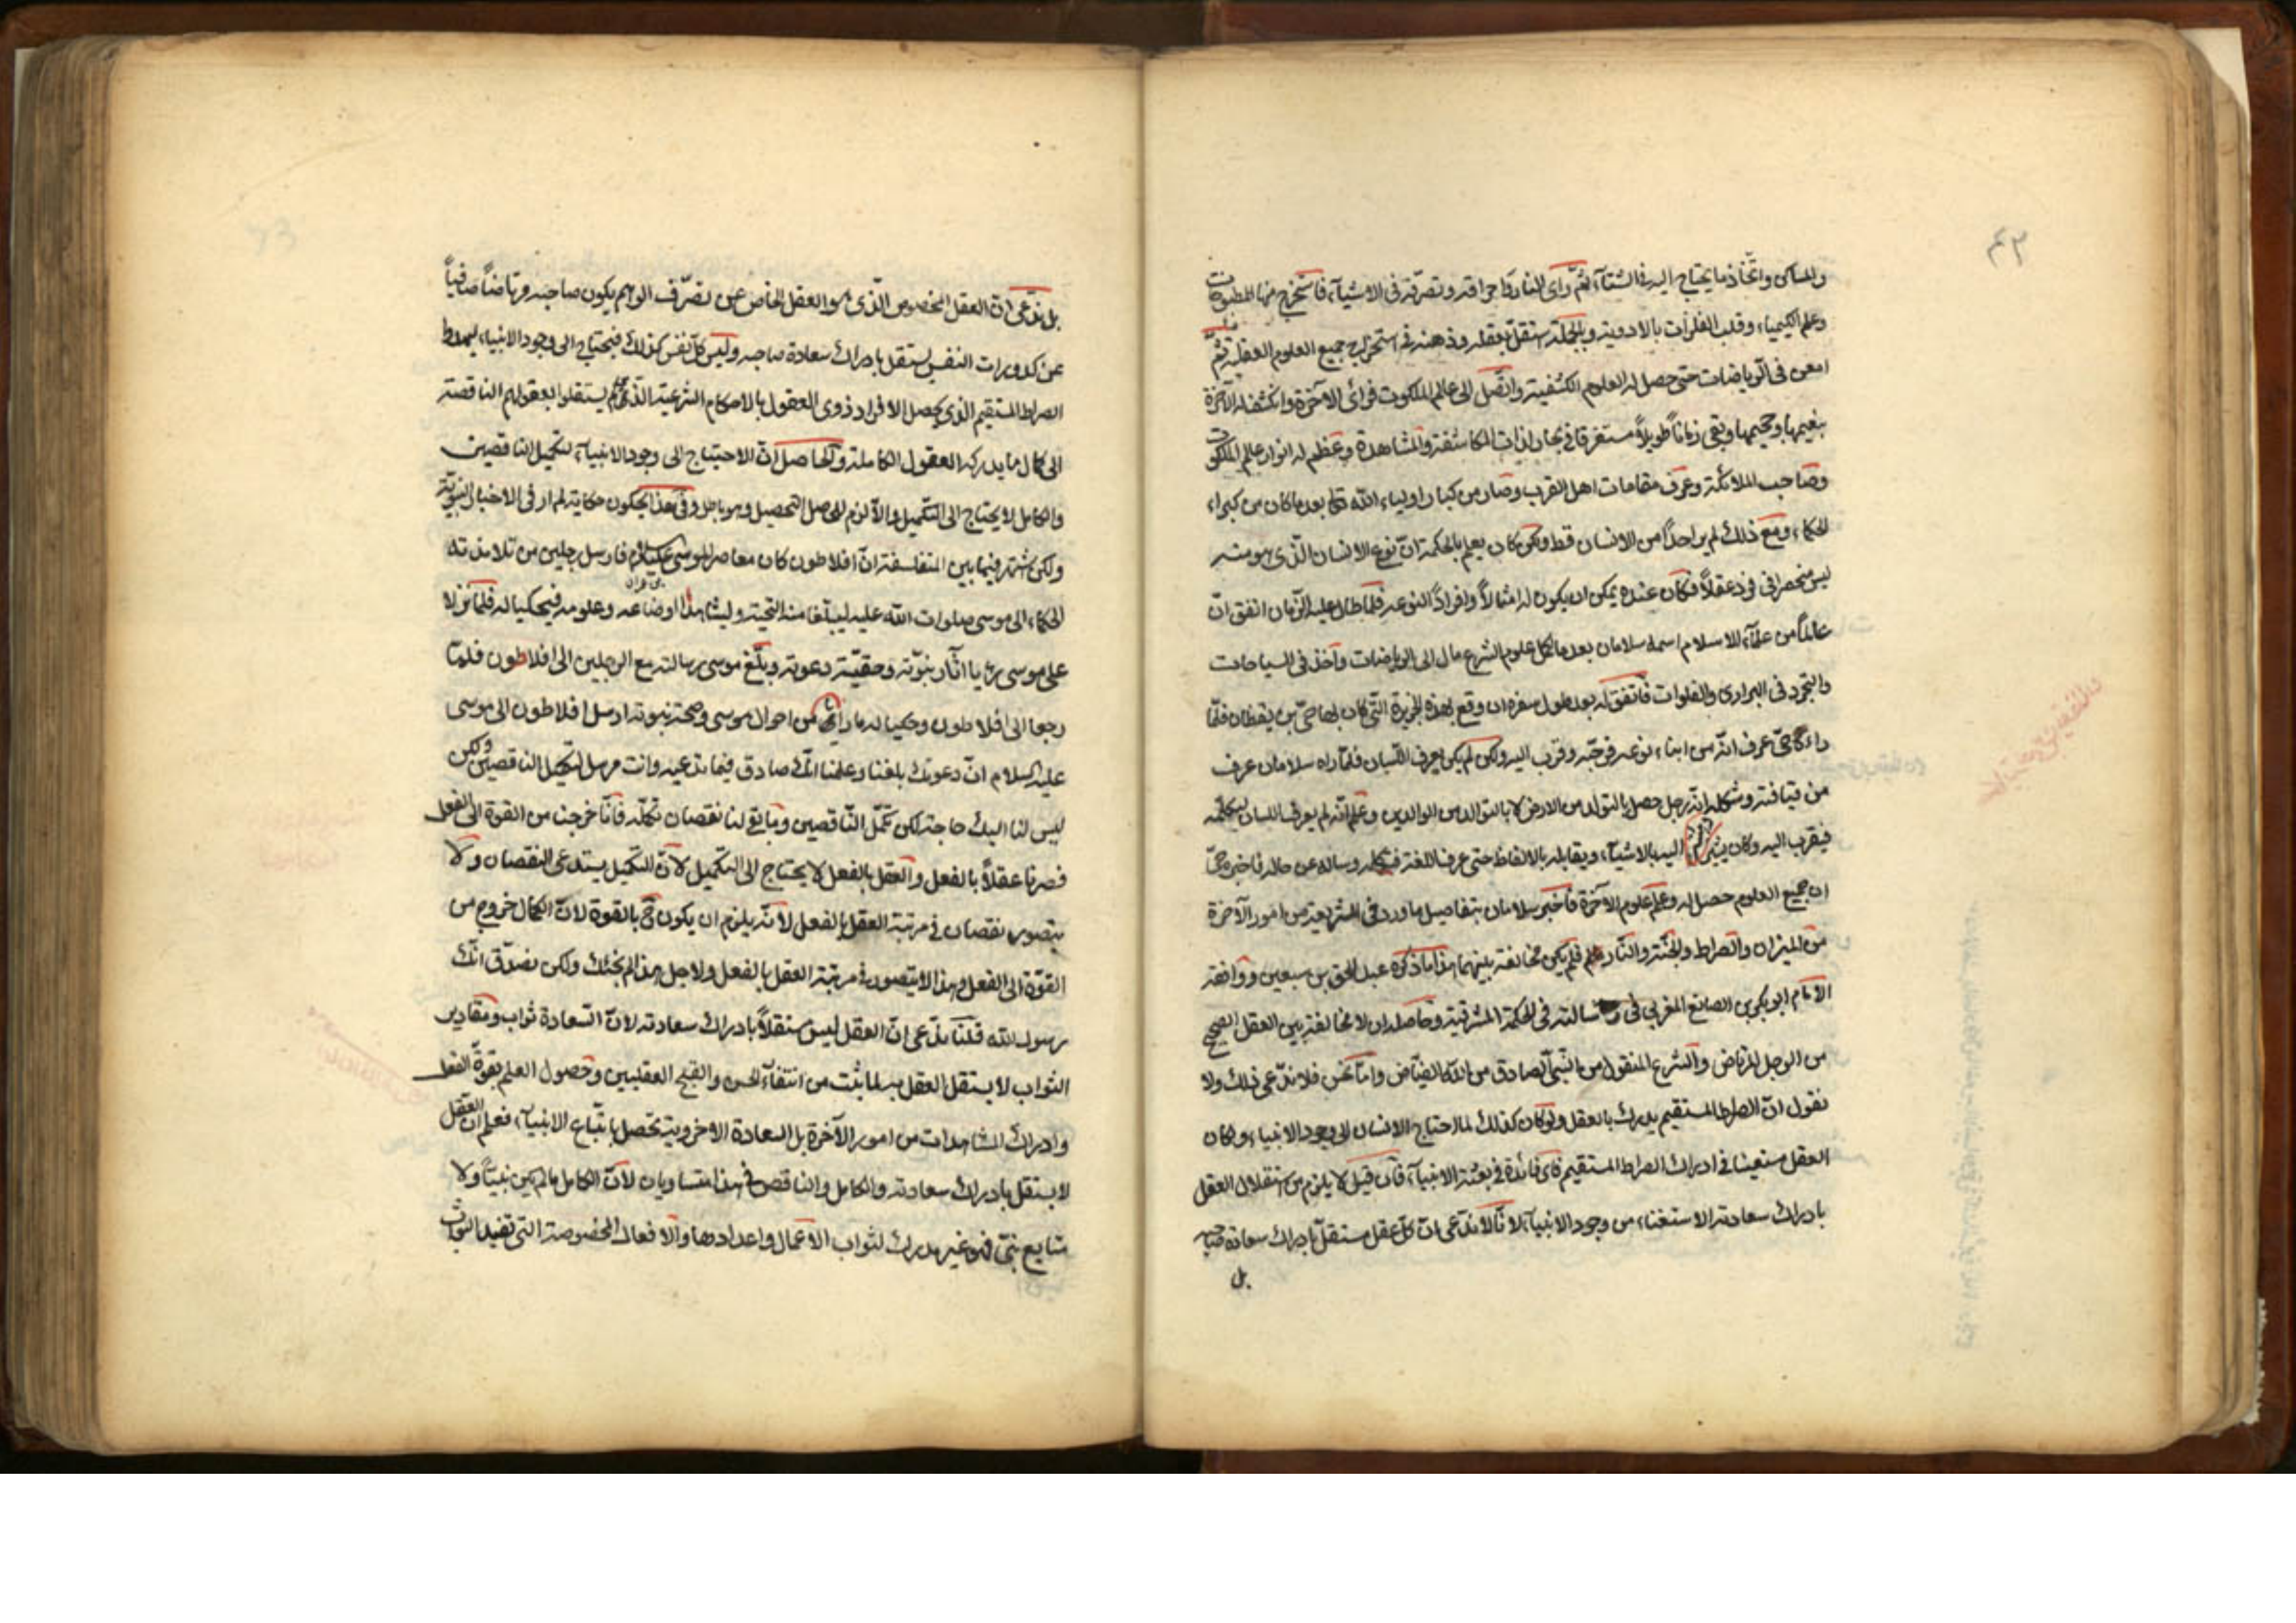 ٤٢
والمساكن واتخاذ ما يحتاج اليه في الشتآء ثمّ رأى النار واحراقه وتصرّفه فى الاشيآء فاستخرج منها المطبوخات
وعلم الكيمياء وقلب الفلزات بالادوية وبالجملة استقلّ بعقله وذهنه فى استخراج جميع العلوم العقلية ثمّ
امعن فى الرياضات حتى حصل له العلوم الكشفية واتّصل الى عالم الملكوت فرأى الآخرة وانكشف له الآخرة
بنعيمها وجحيمها وبقى زماناً طويلاً مستغرقا فى بحار لذات المكاشفة والمشاهدة وعظم له انوار عالم الملكوت
وصاحب الملائكة وعرف مقامات اهل القرب وصار من كبار اولياء الله تعا بعد ما كان من كبراء
الحكماء ومع ذلك لم ير احداً من الانسان قط ولكن كان يعلم بالحكمة انّ نوع الانسان الّذى هو منه
ليس منحصرا فى فرد عقلاً فكان عنده يمكن ان يكون له امثالاً وافراداً لنوعه فلما طال عليه الزمان اتفق انّ
عالماً من علمآء الاسلام اسمه سلامان بعد ما كمل علوم الشرع مال الى الرياضات وأخذ فى السياحات
والتجرد فى البرارى والفلوات فاتفق له بعد طول سفره ان وقع بهذه الجزيرة التى كان بها حىّ بن يقظان فلمّا
رآه حىّ عرف انّه من ابناء نوعه فرحّبه وقرب اليه ولكن لم يكن يعرف اللسان فلمّا راه سلامان عرف
من قيافته وشكله انه رجل حصل بالتولد من الارض لا بالتوالد من الوالدين وعلم انّه لم يعرف اللسان ليكلّمه
فيقرب اليه وكان يشير اليه بالاشيآء ويقابله بالالفاظ حتى عرف اللغة فيتكلم وساله عن حاله فاخبره حىّ
ان جميع العلوم حصل له وعلم علوم الآخرة فاخبر سلامان بتفاصيل ما ورد فى الشريعة من امور الآخرة
من الميزان والصراط والجنّة والنّار فلم يكن مخالفة بينهما هذا ما ذكره عبد الحق بن سبعين ووافقه
الامام ابو بكر بن الصائغ المغربى فى رسالته فى الحكمة المشرقية وحاصله ان لا مخالفة بين العقل الصحيح
من الرجل المرتاض والشرع المنقول من النبىّ الصادق من الملك الفيّاض وامّا نحن فلا ندّعى ذلك ولا
نقول انّ الصراط المستقيم يدرك بالعقل ولو كان كذلك لما احتاج الانسان الى وجود الانبياء ولو كان
العقل مستعينا فى ادراك الصراط المستقيم فاى فائدة فى بعثة الانبيآء فان قيل لا يلزم من استقلال العقل
بادراك سعادته الاستغناء من وجود الانبيآء لانّا لا ندّعى انّ كلّ عقل مستقلّ بادراك سعادة صاحبه
بل
بل ندّعى انّ العقل المخصوص الّذى هو العقل الخاص عن تصرّف الوهم يكون صاحبه مرتاضاً صافياً
عن كدورات النفس يستقل بادراك سعادة صاحبه وليس كلّ نفس كذلك فيحتاج الى وجود الانبياء
الصراط المستقيم الذى يحصل الافراد ذوى العقول بالاحكام الشرعية الذى لم يستقلوا بعقولهم الناقصة
الى كمال ما يدركه العقول الكاملة والحاصل انّ الاحتياج الى وجود الانبيآء لتكميل الناقصين
والكامل لا يحتاج الى التكميل والاّ لزم تحصيل الحاصل وهو باطل وفى هذا يحكون حكاية لم ار فى الاخبار النبوية
ولكن شتهر فيما بين المتفلسفة انّ افلاطون كان معاصر الموسى عليه السلام فارسل رجلين من تلامذته
الحكماء الى موسى صلوات الله عليه ليبلّغا منه التحية وليشاهدا اوضاعه وعلومه فيحكيا له فلما نزلا
على موسى رايا آثار نبوّته وحقيّة دعوته وبلّغ موسى رسالته مع الرجلين الى افلاطون فلمّا
رجعا الى افلاطون وحكيا له ما رايا من احوال موسى وصحة نبوته ارسل افلاطون الى موسى
عليه السلام انّ دعوتك بلغنا وعلمنا انّك صادق فيما تدعيه وانت مرسل لتكميل الناقصين ولكن
ليس لنا اليك حاجة لكن تكمّل النّاقصين وما بقى لنا نقصان تكمله فانّا خرجنا من القوة الى الفعل
فصرنا عقلاً بالفعل والعقل بالفعل لا يحتاج الى التكميل لانّ التكميل يستدعى النقصان ولا
يتصور نقصان فى مرتبة العقل بالفعل لانّه يلزم ان يكون ح بالقوة لانّ الكمال خروج من
القوّة الى الفعل وهذا لا يتصور فى مرتبة العقل بالفعل ولاجل هذا لم نجئك ولكن نصدّق انّك
رسول الله قلنا ندّعى انّ العقل ليس مستقلاً بادراك سعادته لانّ السعادة ثواب ومقادير
الثواب لا يستقل العقل به لما ثبت من انتفآء الحسن والقبح العقليين وحصول العلم بقوة الفعل
وادراك المشاهدات من امور الآخرة بل السعادة الاخروية تحصل باتّباع الانبيآء فعلم ان العقل
لا يستقل بادراك سعادته والكامل والناقص فى هذا متساويان لانّ الكامل ما لم يكن نبيّاً ولا
متابع نبىّ فهو غير مدرك لثواب الاعمال واعدادها والافعال المخصوصة التى تفيد الثواب